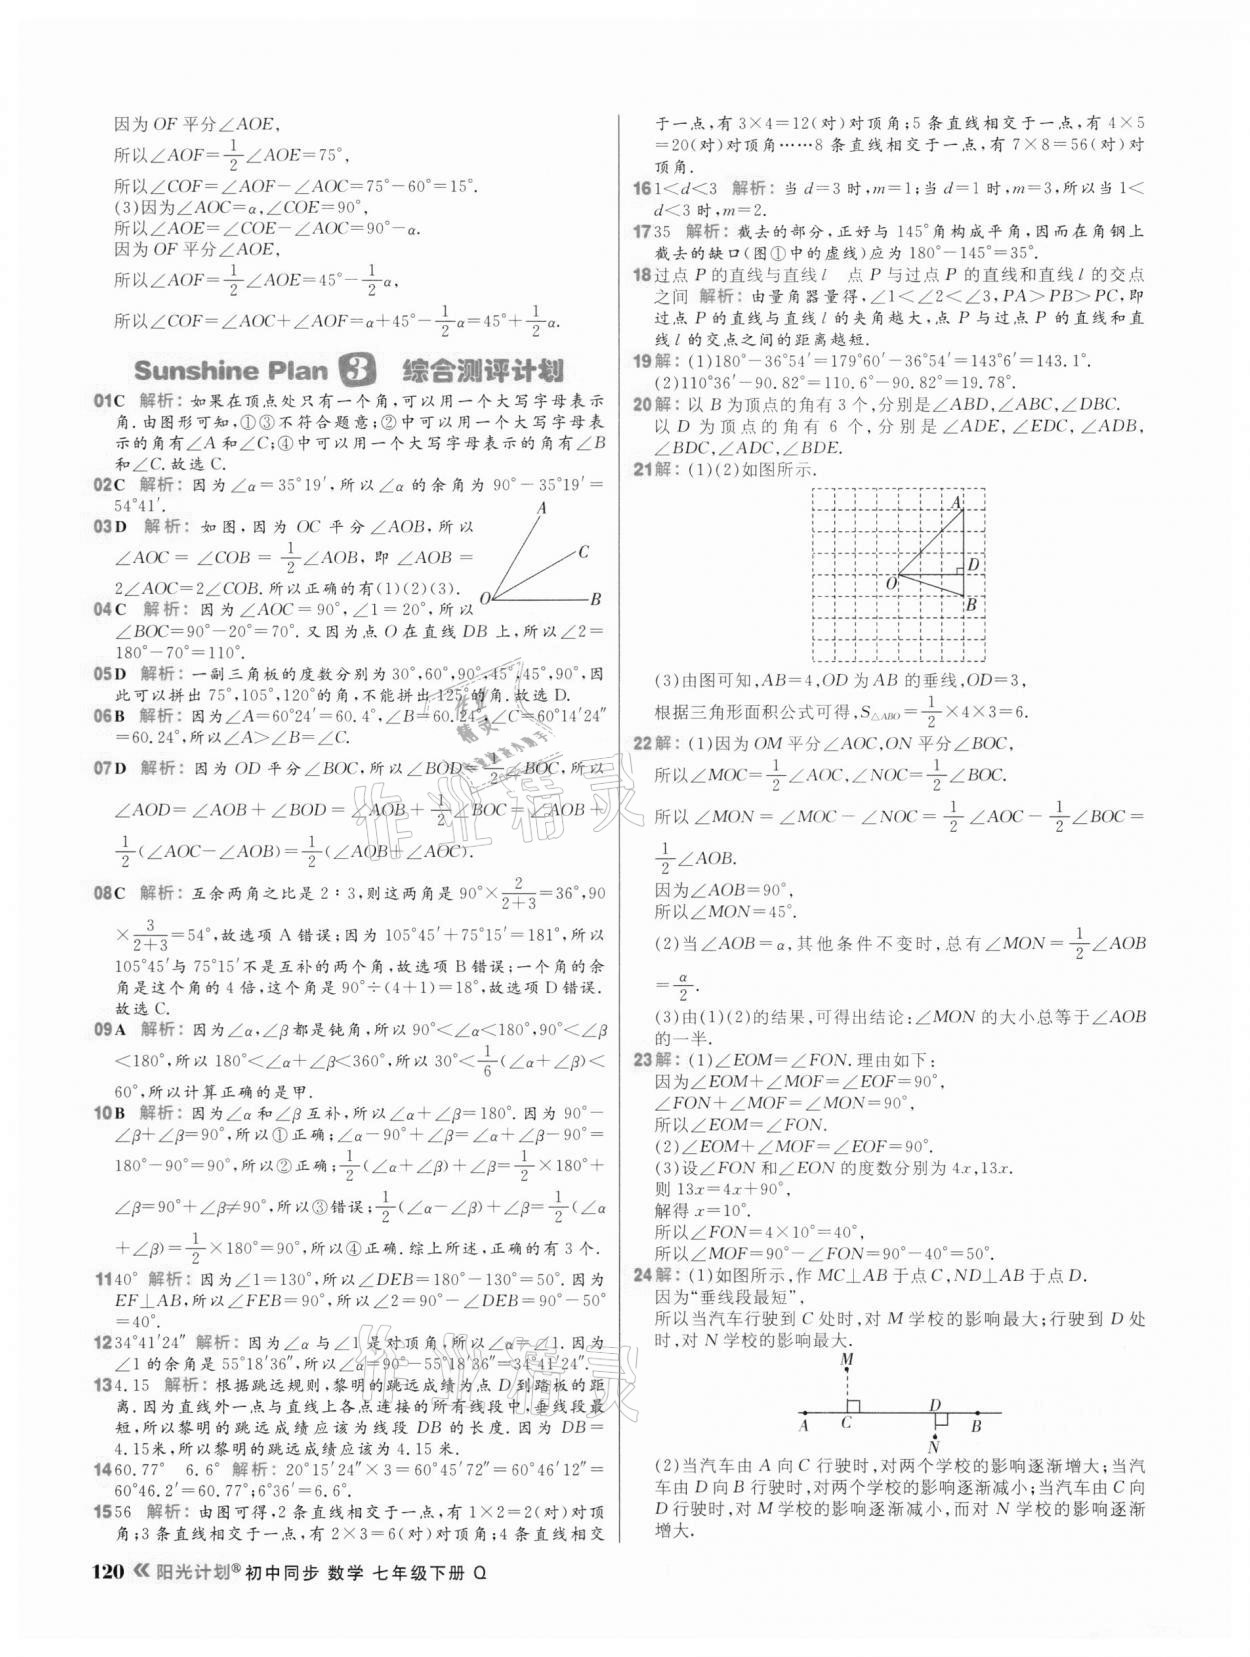 因为OF平分∠AOE,
所以∠AOF=1/2∠AOE=75°,
所以∠COF=∠AOF-∠AOC=75°-60°=15°.
(3)因为∠AOC=α,∠COE=90°,
所以∠AOE=∠COE-∠AOC=90°-α.
因为OF平分∠AOE,
所以∠AOF=1/2∠AOE=45°-1/2α,
所以∠COF=∠AOC+∠AOF=α+45°-1/2α=45°+1/2α.
Sunshine Plan 3 综合测评计划
01C 解析:如果在顶点处只有一个角,可以用一个大写字母表示
角.由图形可知,①③不符合题意;②中可以用一个大写字母表
示的角有∠A和∠C;④中可以用一个大写字母表示的角有∠B
和∠C.故选C.
02C 解析:因为∠α=35°19′,所以∠α的余角为90°-35°19′=
54°41′.
03D 解析:如图,因为OC平分∠AOB,所以
∠AOC=∠COB=1/2∠AOB,即∠AOB=
2∠AOC=2∠COB.所以正确的有(1)(2)(3).
A
C
O
B
04C 解析:因为∠AOC=90°,∠1=20°,所以
∠BOC=90°-20°=70°.又因为点O在直线DB上,所以∠2=
180°-70°=110°.
05D 解析:一副三角板的度数分别为30°,60°,90°,45°,45°,90°,因
此可以拼出75°,105°,120°的角,不能拼出125°的角.故选D.
06B 解析:因为∠A=60°24′=60.4°,∠B=60.24°,∠C=60°14′24″
=60.24°,所以∠A>∠B=∠C.
07D 解析:因为OD平分∠BOC,所以∠BOD=1/2∠BOC,所以
∠AOD=∠AOB+∠BOD=∠AOB+1/2∠BOC=∠AOB+
1/2(∠AOC-∠AOB)=1/2(∠AOB+∠AOC).
08C 解析:互余两角之比是2∶3,则这两角是90°×2/(2+3)=36°,90
×3/(2+3)=54°,故选项A错误;因为105°45′+75°15′=181°,所以
105°45′与75°15′不是互补的两个角,故选项B错误;一个角的余
角是这个角的4倍,这个角是90°÷(4+1)=18°,故选项D错误.
故选C.
09A 解析:因为∠α,∠β都是钝角,所以90°<∠α<180°,90°<∠β
<180°,所以180°<∠α+∠β<360°,所以30°<1/6(∠α+∠β)<
60°,所以计算正确的是甲.
10B 解析:因为∠α和∠β互补,所以∠α+∠β=180°.因为90°-
∠β+∠β=90°,所以①正确;∠α-90°+∠β=∠α+∠β-90°=
180°-90°=90°,所以②正确;1/2(∠α+∠β)+∠β=1/2×180°+
∠β=90°+∠β≠90°,所以③错误;1/2(∠α-∠β)+∠β=1/2(∠α
+∠β)=1/2×180°=90°,所以④正确.综上所述,正确的有3个.
1140° 解析:因为∠1=130°,所以∠DEB=180°-130°=50°.因为
EF⊥AB,所以∠FEB=90°,所以∠2=90°-∠DEB=90°-50°
=40°.
1234°41′24″ 解析:因为∠α与∠1是对顶角,所以∠α=∠1.因为
∠1的余角是55°18′36″,所以∠α=90°-55°18′36″=34°41′24″.
134.15 解析:根据跳远规则,黎明的跳远成绩为点D到踏板的距
离.因为直线外一点与直线上各点连接的所有线段中,垂线段最
短,所以黎明的跳远成绩应该为线段DB的长度.因为DB=
4.15米,所以黎明的跳远成绩应该为4.15米.
1460.77° 6.6° 解析:20°15′24″×3=60°45′72″=60°46′12″=
60°46.2′=60.77°;6°36′=6.6°.
1556 解析:由图可得,2条直线相交于一点,有1×2=2(对)对顶
角;3条直线相交于一点,有2×3=6(对)对顶角;4条直线相交
于一点,有3×4=12(对)对顶角;5条直线相交于一点,有4×5
=20(对)对顶角……8条直线相交于一点,有7×8=56(对)对
顶角.
161<d<3 解析:当d=3时,m=1;当d=1时,m=3,所以当1<
d<3时,m=2.
1735 解析:截去的部分,正好与145°角构成平角,因而在角钢上
截去的缺口(图①中的虚线)应为180°-145°=35°.
18过点P的直线与直线l 点P与过点P的直线和直线l的交点
之间 解析:由量角器量得,∠1<∠2<∠3,PA>PB>PC,即
过点P的直线与直线l的夹角越大,点P与过点P的直线和直
线l的交点之间的距离越短.
19解:(1)180°-36°54′=179°60′-36°54′=143°6′=143.1°.
(2)110°36′-90.82°=110.6°-90.82°=19.78°.
20解:以B为顶点的角有3个,分别是∠ABD,∠ABC,∠DBC.
以D为顶点的角有6个,分别是∠ADE,∠EDC,∠ADB,
∠BDC,∠ADC,∠BDE.
21解:(1)(2)如图所示.
A
D
O
B
(3)由图可知,AB=4,OD为AB的垂线,OD=3,
根据三角形面积公式可得,S△ABO=1/2×4×3=6.
22解:(1)因为OM平分∠AOC,ON平分∠BOC,
所以∠MOC=1/2∠AOC,∠NOC=1/2∠BOC.
所以∠MON=∠MOC-∠NOC=1/2∠AOC-1/2∠BOC=
1/2∠AOB.
因为∠AOB=90°,
所以∠MON=45°.
(2)当∠AOB=α,其他条件不变时,总有∠MON=1/2∠AOB
=α/2.
(3)由(1)(2)的结果,可得出结论:∠MON的大小总等于∠AOB
的一半.
23解:(1)∠EOM=∠FON.理由如下:
因为∠EOM+∠MOF=∠EOF=90°,
∠FON+∠MOF=∠MON=90°,
所以∠EOM=∠FON.
(2)∠EOM+∠MOF=∠EOF=90°.
(3)设∠FON和∠EON的度数分别为4x,13x.
则13x=4x+90°,
解得x=10°.
所以∠FON=4×10°=40°,
所以∠MOF=90°-∠FON=90°-40°=50°.
24解:(1)如图所示,作MC⊥AB于点C,ND⊥AB于点D.
因为“垂线段最短”,
所以当汽车行驶到C处时,对M学校的影响最大;行驶到D处
时,对N学校的影响最大.
M
A C D B
N
(2)当汽车由A向C行驶时,对两个学校的影响逐渐增大;当汽
车由D向B行驶时,对两个学校的影响逐渐减小;当汽车由C向
D行驶时,对M学校的影响逐渐减小,而对N学校的影响逐渐
增大.
120 《 阳光计划® 初中同步 数学 七年级下册 Q
作业精灵
作业精灵
作业
精灵